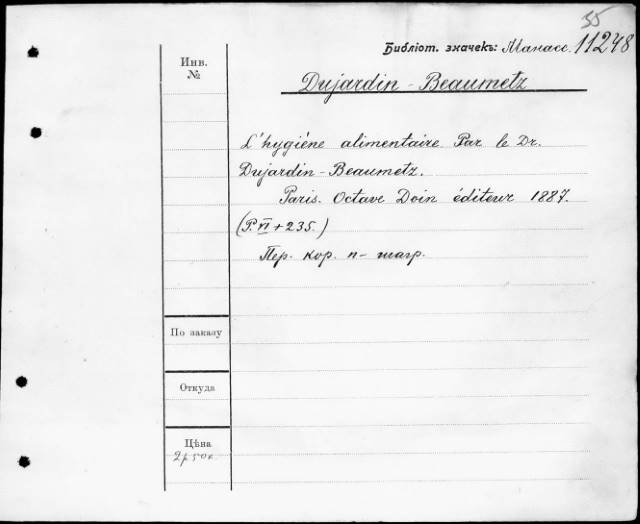 35
Библіот. значекъ: Манасс. 11248
Инв.
№
Dujardin - Beaumetz
L'hygiéne alimentaire Par le Dr.
Dujardin - Beaumetz.
Paris. Octave Doin éditeur 1887.
(P. VI + 235.)
Пер. кор. п- шагр.
По заказу
Откуда
Цѣна
2 р 50 к